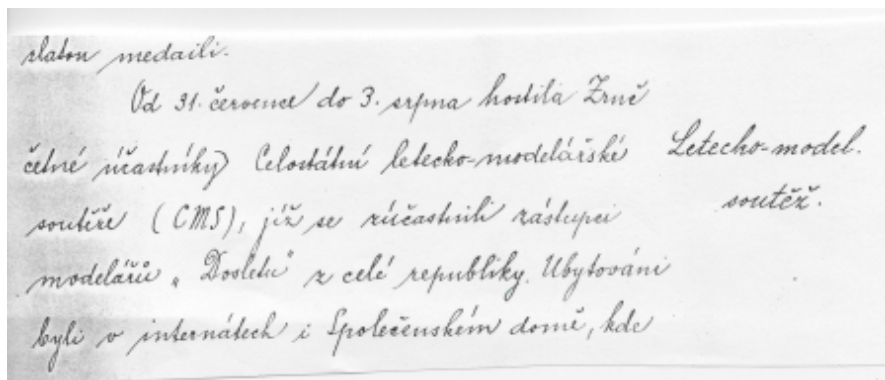 zlatou medaili.
Od 31. července do 3. srpna hostila Zruč
četné účastníky Celostátní letecko-modelářské
soutěže (CMS), jíž se zúčastnili zástupci
modelářů „Dosletu" z celé republiky. Ubytováni
byli v internátech i Společenském domě, kde
Letecko-model.
soutěž.